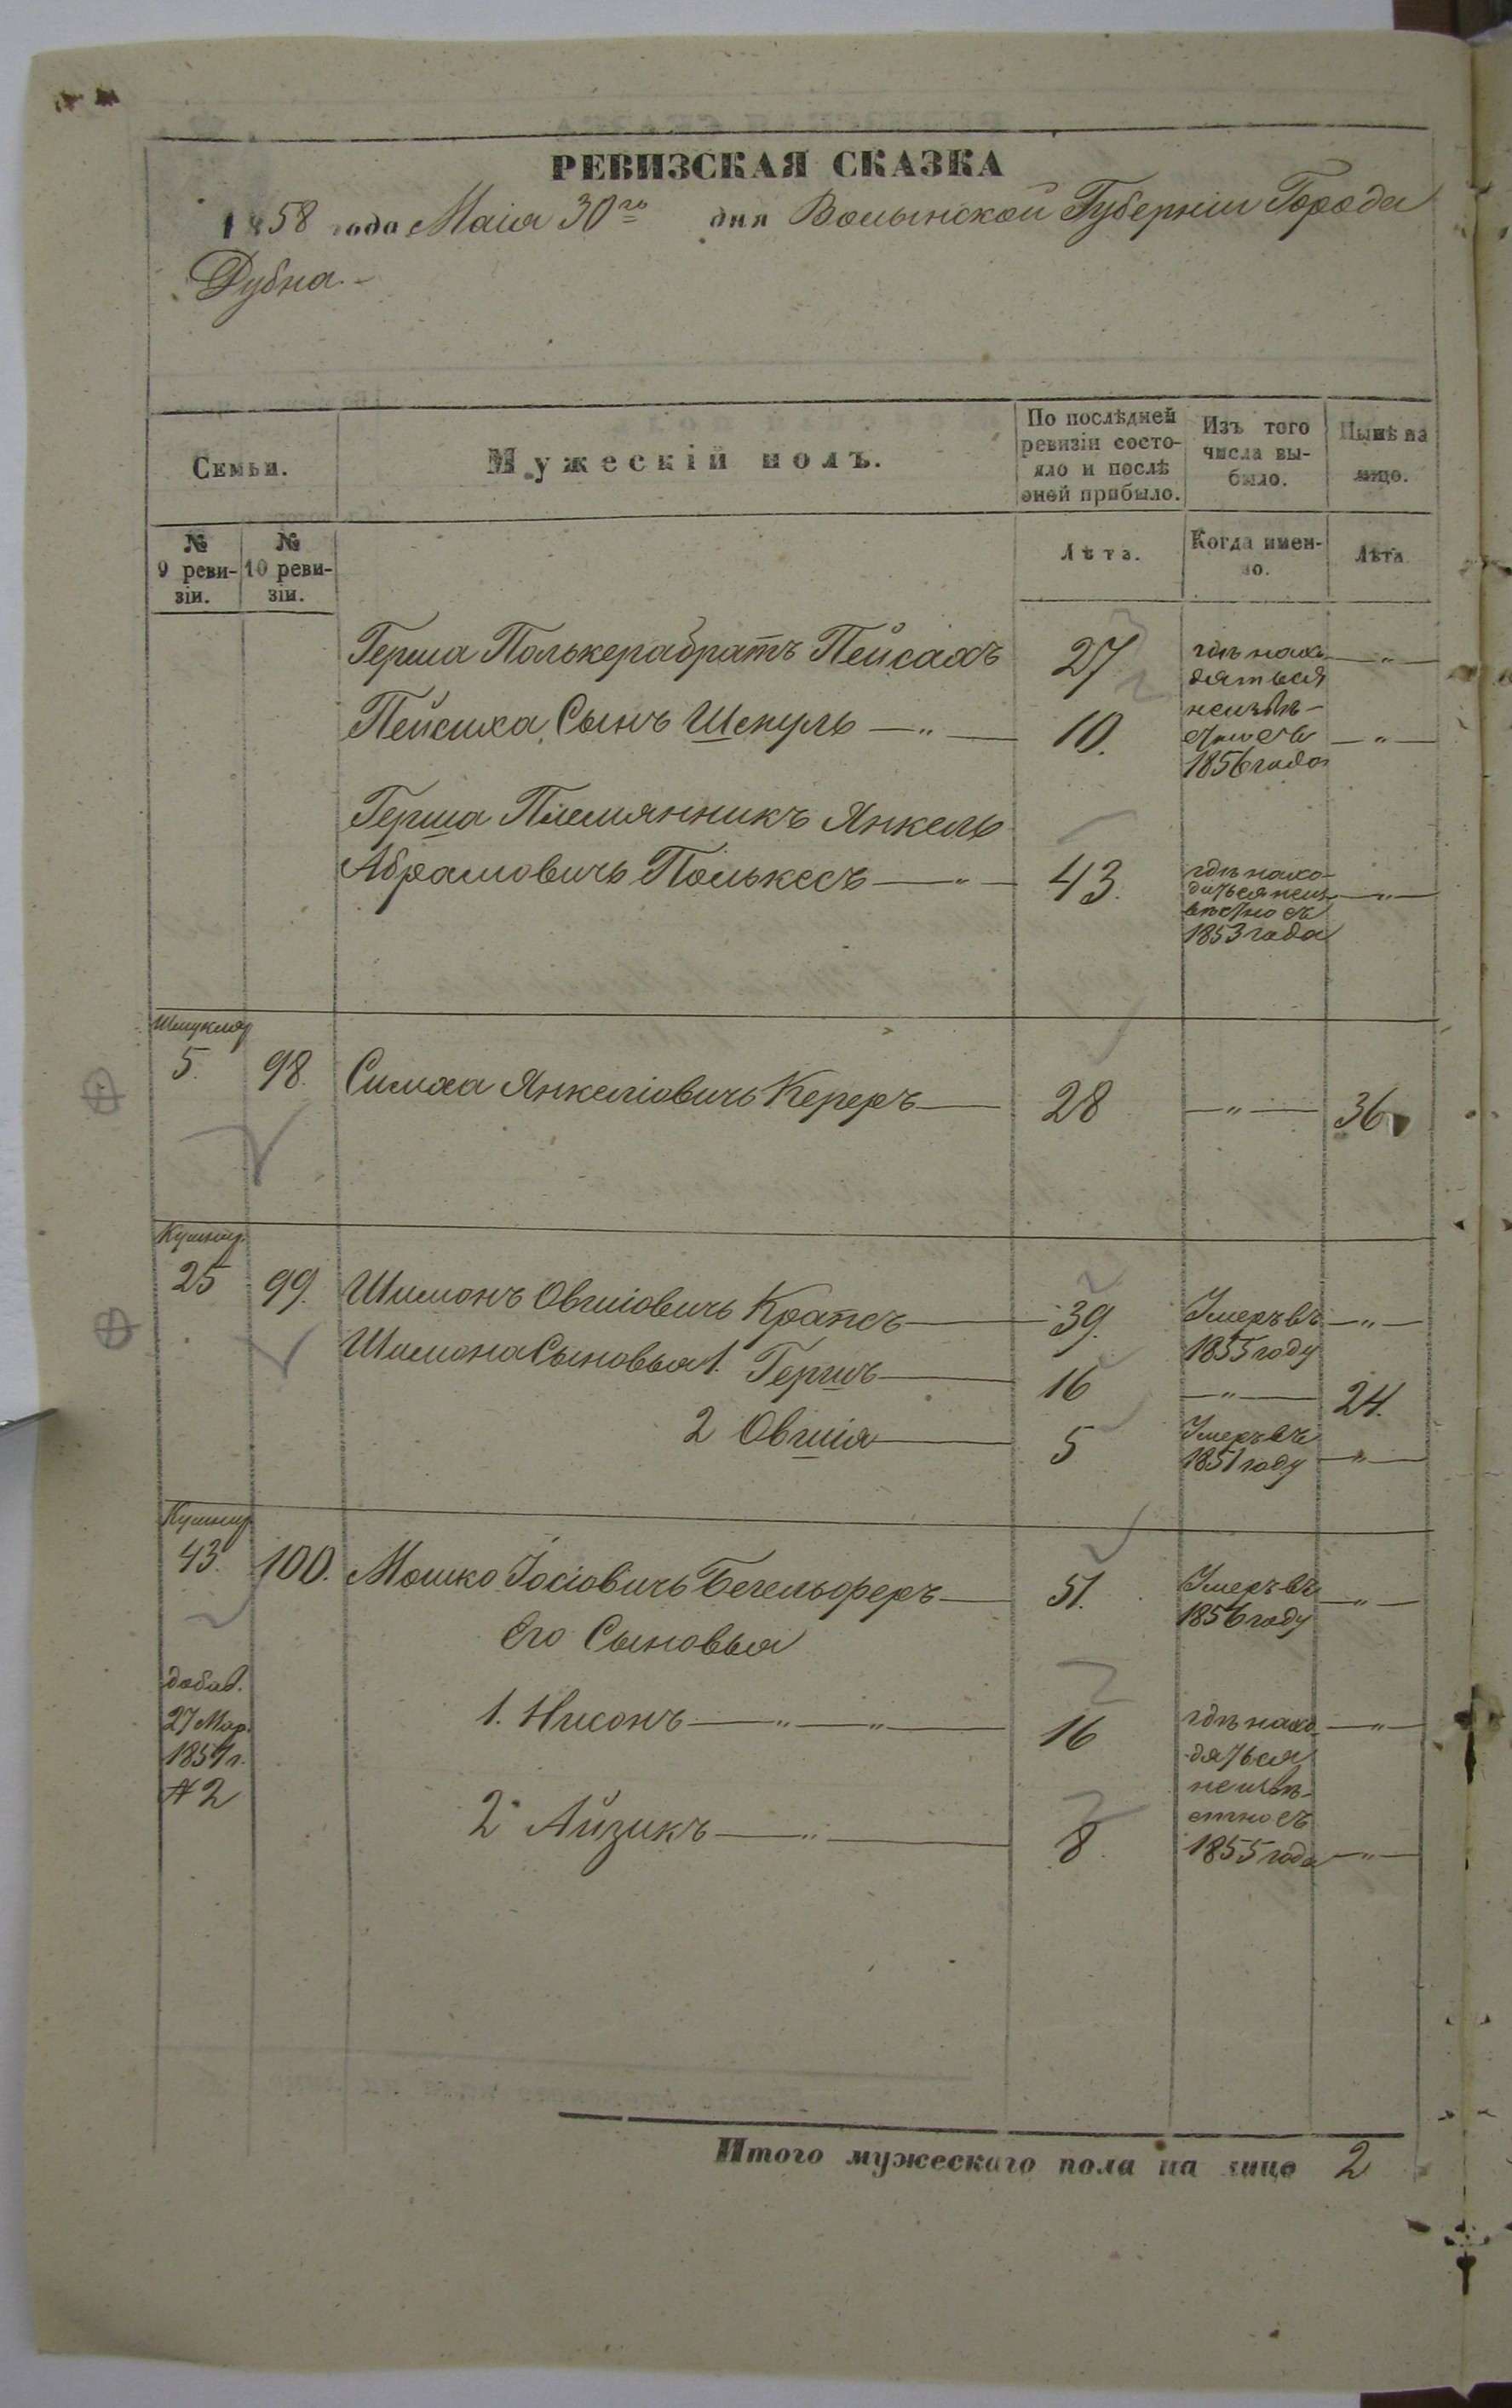 РЕВИЗСКАЯ СКАЗКА
1858 года Маіа 30го дня Волынской Губерніи Города
Дубна.
Семьи.
Мужескій полъ.
По послѣдней
ревизіи состо-
яло и послѣ
оной прибыло.
Изъ того
числа вы-
было.
Нынѣ на
лицо.
№
9 реви-
зіи.
№
10 реви-
зіи.
Лѣта.
Когда имен-
но.
Лѣта
Герша Полькера братъ Пейсахъ 27
гдѣ нахо
дяться
неизвѣ-
стно съ
1856 года
Пейсиха Сынъ Шепуль 10.
Герша Племянникъ Янкель
Абрамовичъ Полькесъ 43.
гдѣ нахо-
диться неиз
вѣстно съ
1853 года
Шмукляр
5. 98. Симха Янкеліовичъ Кереръ 28 36
Кушнир.
25 99. Шимонъ Овшіовичъ Крапсъ 39.
Умеръ въ
1855 году
Шимона Сыновья 1. Гершъ 16 24.
2 Овшія 5
Умеръ въ
1851 году
Кушнир
43. 100. Мошко Іосіовичъ Бегельоферъ 51.
Умеръ въ
1856 году
Его Сыновья
добав.
27 Мар.
1857 г.
№ 2
1. Нисонъ 16
гдѣ нахо
дяться
неизвѣ-
стно съ
1855 года
2 Айзикъ 8.
Итого мужескаго пола на лицо 2